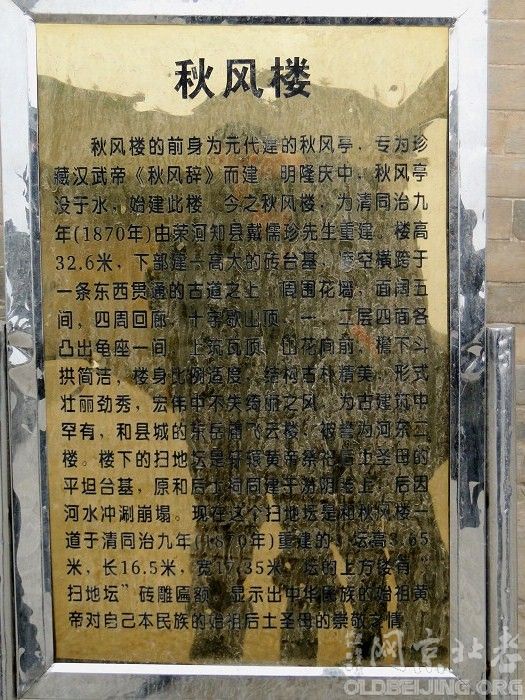 秋风楼
秋风楼的前身为元代建的秋风亭，专为珍
藏汉武帝《秋风辞》而建 明隆庆中，秋风亭
没于水，始建此楼 今之秋风楼，为清同治九
年(1870年)由荣河知县戴儒珍先生重建 楼高
32.6米，下部建一高大的砖台基，凌空横跨于
一条东西贯通的古道之上 周围花墙，面阔五
间，四周回廊，十字歇山顶，一、二层四面各
凸出龟座一间，上筑瓦顶，山花向前，檐下斗
拱简洁，楼身比例适度，结构古朴精美，形式
壮丽劲秀，宏伟中不失绮丽之风，为古建筑中
罕有，和县城的东岳庙飞云楼，被誉为河东二
楼。楼下的扫地坛是轩辕黄帝祭祀后土圣母的
平坦台基，原和后土祠同建于汾阴脽上，后因
河水冲涮崩塌。现在这个扫地坛是和秋风楼一
道于清同治九年(1870年)重建的，坛高3.65
米，长16.5米，宽17.35米，坛的上方镂有"
扫地坛"砖雕匾额，显示出中华民族的始祖黄
帝对自己本民族的始祖后土圣母的崇敬之情
老北京网
OLDBEIJING.ORG